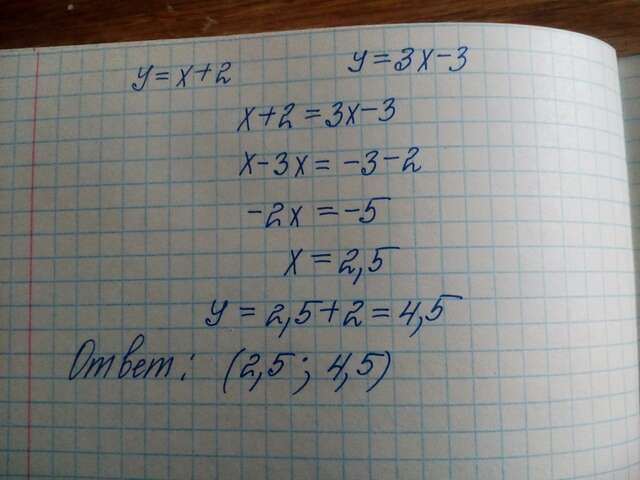 y=x+2 y=3x-3
x+2=3x-3
x-3x=-3-2
-2x=-5
x=2,5
y=2,5+2=4,5
Ответ: (2,5; 4,5)